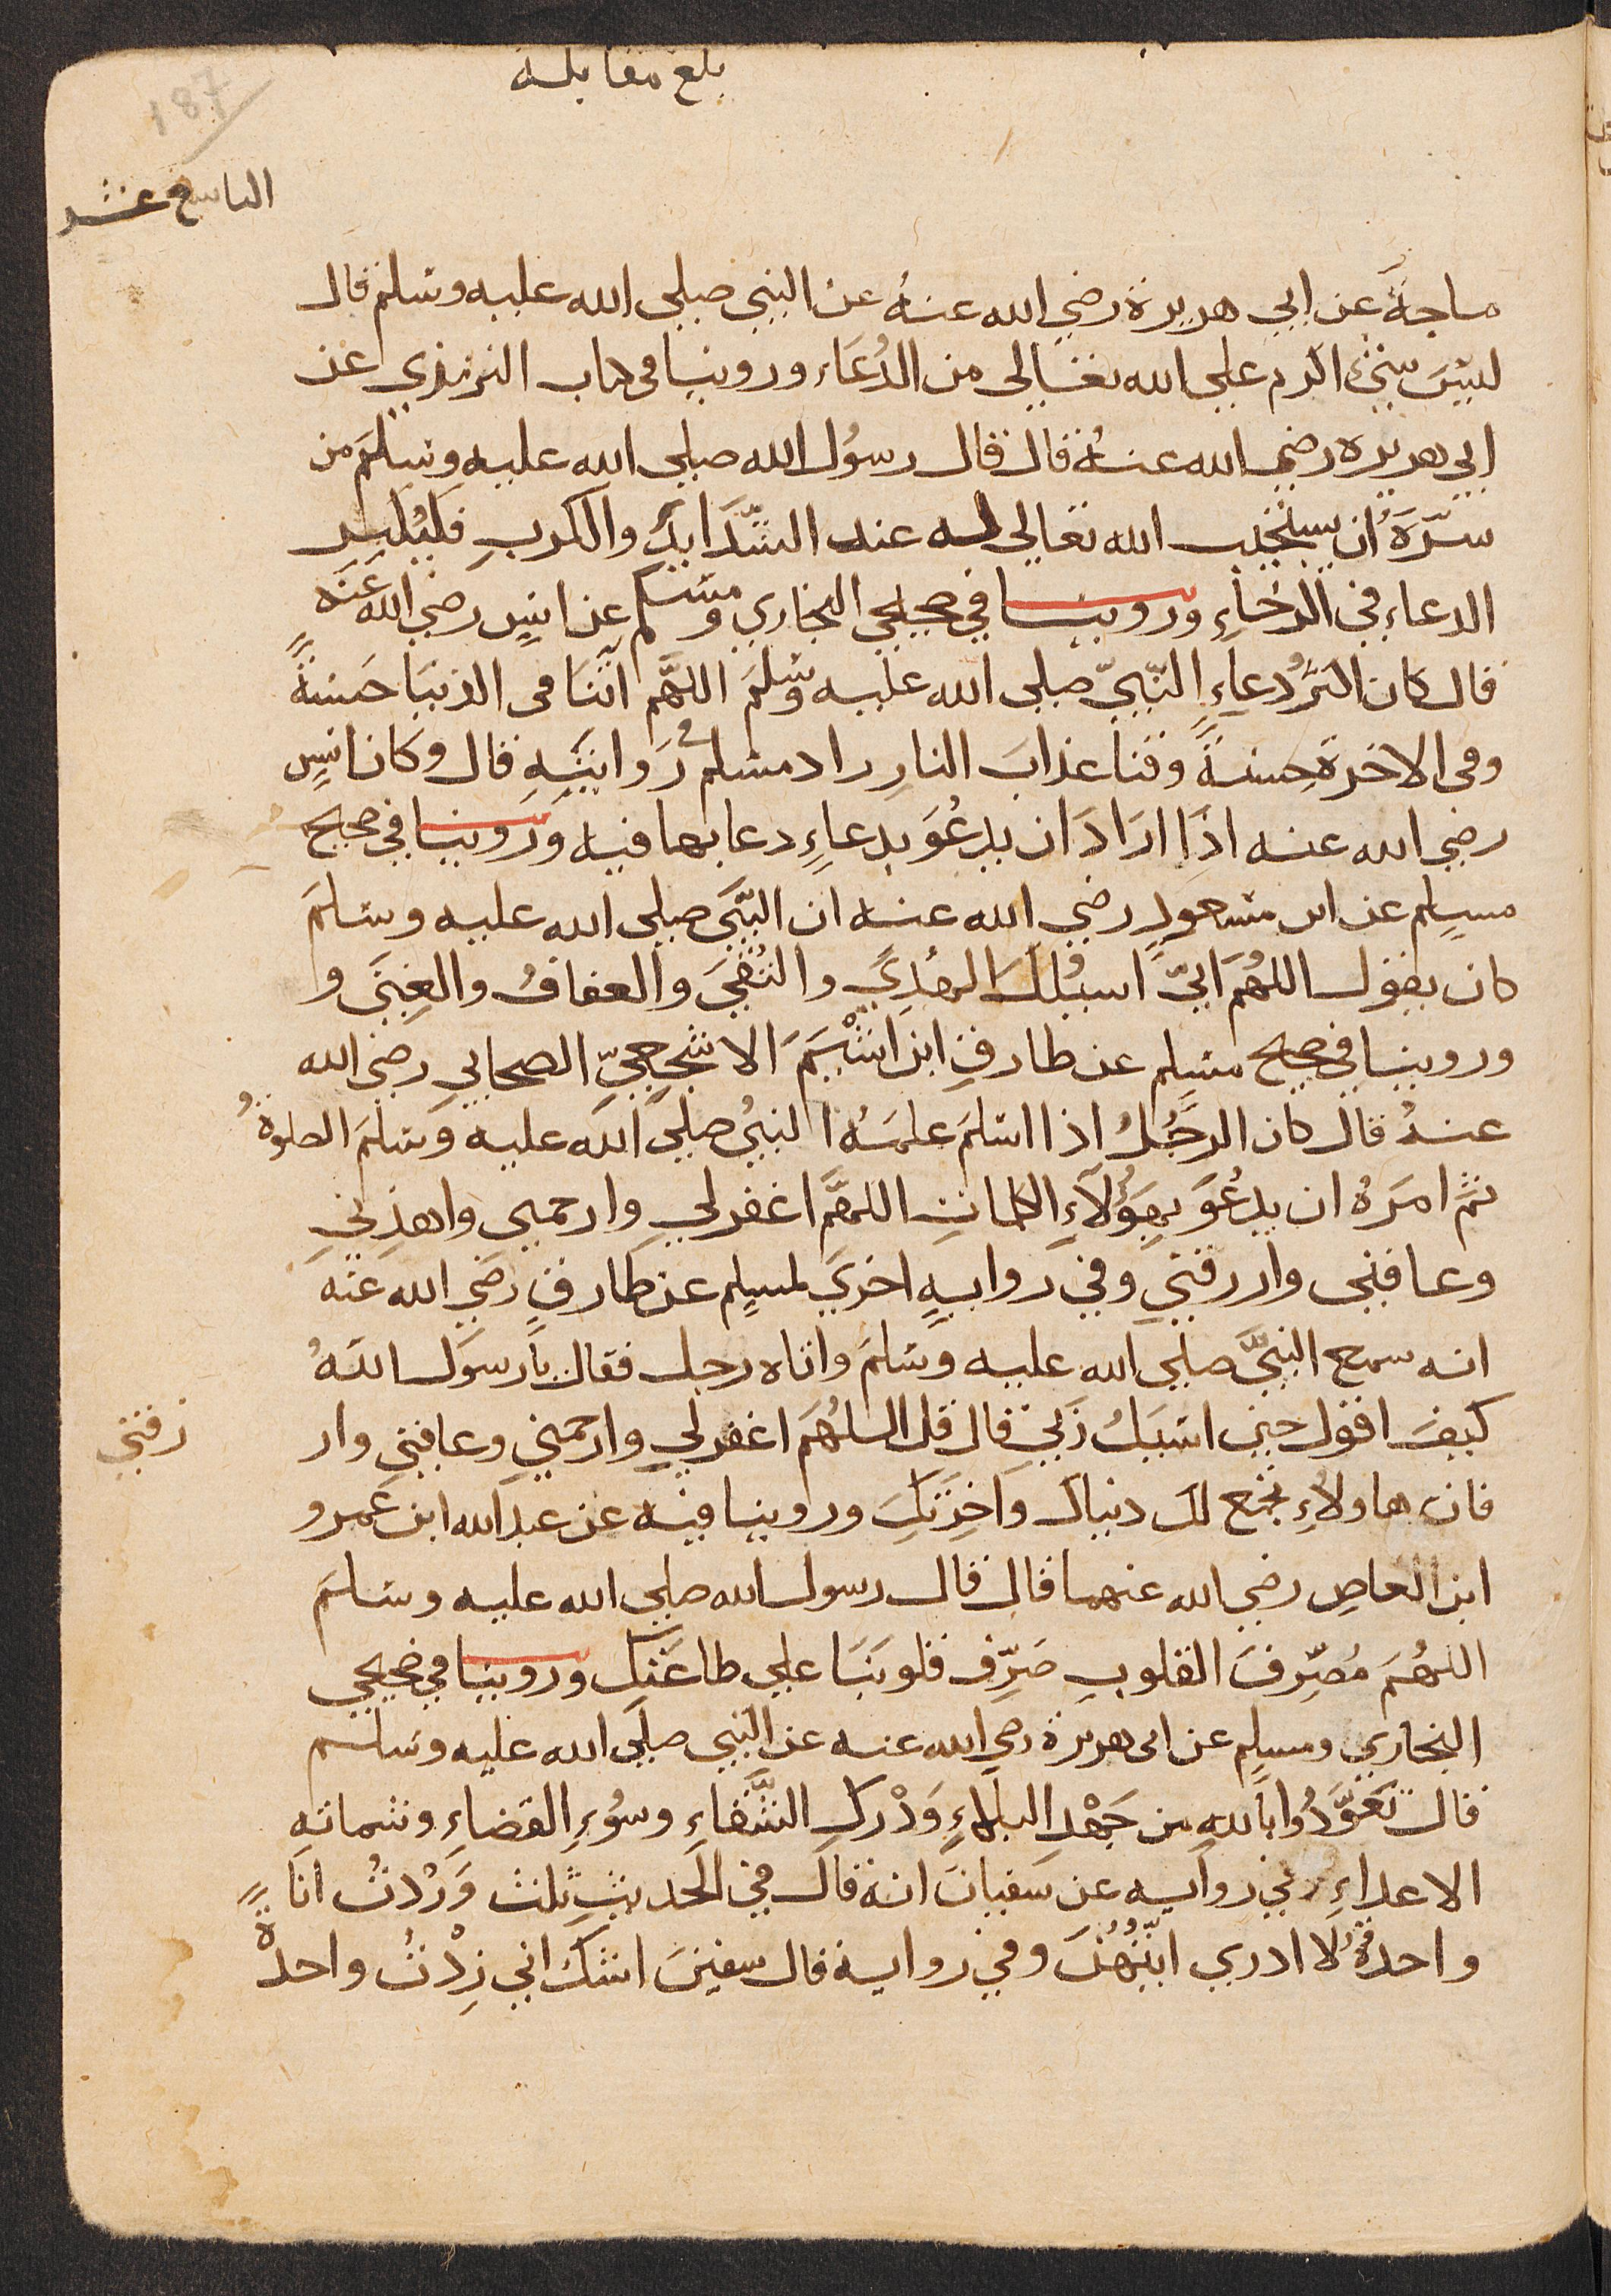 بلغ مقابلة
187
التاسع عشر
ماجة عن ابي هريرة رضي الله عنه عن النبي صلى الله عليه وسلم قال
ليس شيء اكرم على الله تعالى من الدعاء وروينا في كتاب الترمذي عن
ابي هريرة رضي الله عنه قال قال رسول الله صلى الله عليه وسلم من
سره ان يستجيب الله تعالى له عند الشدايد والكرب فليكثر
الدعاء في الرخاء وروينا في صحيحي البخاري ومسلم عن انس رضي الله عنه
قال كان اكثر دعاء النبي صلى الله عليه وسلم اللهم اتنا في الدنيا حسنة
وفي الاخرة حسنة وقنا عذاب النار زاد مسلم في روايته قال وكان انس
رضي الله عنه اذا اراد ان يدعو بدعاء دعا بها فيه وروينا في صحيح
مسلم عن ابن مسعود رضي الله عنه ان النبي صلى الله عليه وسلم
كان يقول اللهم اني اسيلك الهدي والتقي والعفاف والغنى و
وروينا في صحيح مسلم عن طارق ابن اشيم الاشجعي الصحابي رضي الله
عنه قال كان الرجل اذا اسلم علمه النبي صلى الله عليه وسلم الصلوة
ثم امره ان يدعو بهؤلاء الكلمات اللهم اغفر لي وارحمني واهدني
وعافني وارزقني وفي رواية اخري لمسلم عن طارق رضي الله عنه
انه سمع النبي صلى الله عليه وسلم واتاه رجل فقال يا رسول الله
كيف اقول حين اسيل ربي قال قل اللهم اغفر لي وارحمني وعافني وار
زقني
فان هاولاء تجمع لك دنياك واخرتك وروينا فيه عن عبد الله ابن عمرو
ابن العاص رضي الله عنهما قال قال رسول الله صلى الله عليه وسلم
اللهم مصرف القلوب صرف قلوبنا على طاعتك وروينا في صحيحي
البخاري ومسلم عن ابي هريرة رضي الله عنه عن النبي صلى الله عليه وسلم
قال تعوذوا بالله من جهد البلاء ودرك الشقاء وسوء القضاء وشماتة
الاعداء وفي رواية عن سفيان انه قال في الحديث ثلث وزدت انا
واحدة لا ادري ايتهن وفي رواية قال سفين اشك اني زدت واحدة